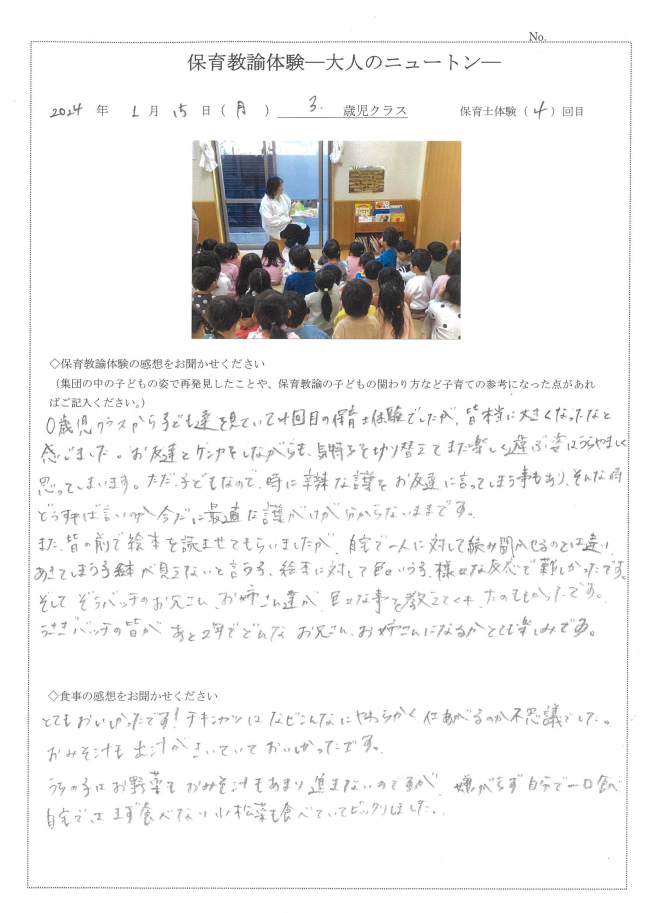 No.
保育教諭体験―大人のニュートン―
2024 年 1 月 15 日 ( 月 ) 3. 歳児クラス 保育士体験 ( 4 ) 回目
◇保育教諭体験の感想をお聞かせください
(集団の中の子どもの姿で再発見したことや、保育教諭の子どもの関わり方など子育ての参考になった点があれ
ばご記入ください。)
0歳児クラスから子ども達を見ていて4回目の保育士体験でしたが、皆本当に大きくなったなと
感じました。お友達とケンカをしながらも、気持ちを切り替えてまた楽しく遊ぶ姿はうらやましく
思ってしまいます。ただ子どもなので、時に辛辣な言葉をお友達に言ってしまう事もあり、そんな時
どうすれば言いのか今だに最適な言葉がけが分からないままです。
また、皆の前で絵本を読ませてもらいましたが、自宅で一人に対して読み聞かせるのとは違い、
あきてしまう子 見えないと言う子、絵本に対して色々いう子、様々な反応で難しかったです。
そして ぞうバッチのお兄さん、お姉さん達が、色々な事を教えてくれたのもよかったです。
うさぎバッチの皆が あと2年でどんな お兄さん、お姉さんになるかとても楽しみです。
◇食事の感想をお聞かせください
とてもおいしかったです!チキンカツは なぜこんなにやわらかく仕上がるのか不思議でした。
おみそ汁も 出汁がきいていて おいしかったです。
うちの子は お野菜も おみそ汁もあまり 進まないのですが、嫌がらず 自分で一口食べ
自宅では まず食べない 小松菜も食べていてビックリしました。